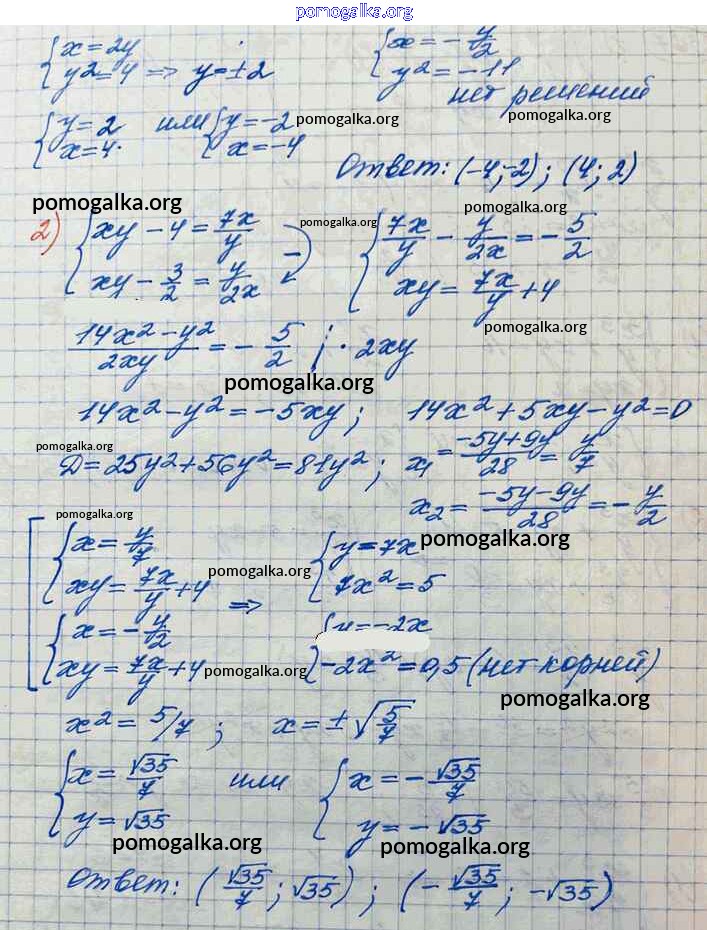 pomogalka.org
{ x = 2y    { x = -y/2
{ y² = 4 => y = ±2    { y² = -11
нет решений
{ y = 2 или { y = -2 pomogalka.org pomogalka.org
{ x = 4. { x = -4
Ответ: (-4; -2); (4; 2)
pomogalka.org pomogalka.org
2) { xy - 4 = 7x/y pomogalka.org { 7x/y - y/2x = -5/2
{ xy - 3/2 = y/2x - { xy = 7x/y + 4
pomogalka.org
(14x² - y²)/2xy = -5/2 ; · 2xy
pomogalka.org
14x² - y² = -5xy; 14x² + 5xy - y² = 0
pomogalka.org
D = 25y² + 56y² = 81y²; x₁ = (-5y + 9y)/28 = y/7
x₂ = (-5y - 9y)/28 = -y/2
pomogalka.org
[ { x = y/7 { y = 7x pomogalka.org
{ xy = 7x/y + 4 pomogalka.org => { 7x² = 5
{ x = -y/2 { y = -2x
{ xy = 7x/y + 4 pomogalka.org { -2x² = 0,5 (нет корней)
pomogalka.org
x² = 5/7 ; x = ±√(5/7)
{ x = √35/7 или { x = -√35/7
{ y = √35 { y = -√35
pomogalka.org pomogalka.org
Ответ: (√35/7; √35); (-√35/7; -√35)